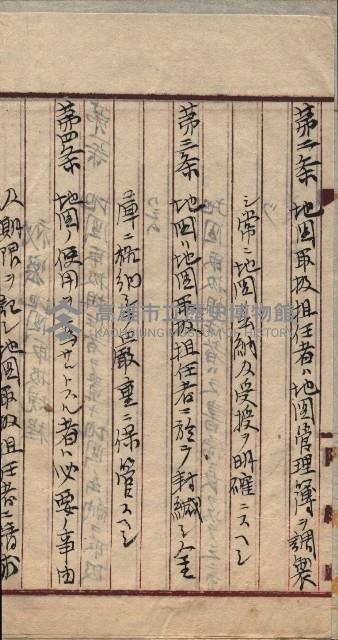 第二条 地図取扱担任者ハ地図管理簿ヲ調製
シ常ニ地図出納及受授ヲ明確ニスヘシ
第三条 地図ハ地図取扱担任者ニ於テ封緘シ金
庫ニ格納シ厳重ニ保管スヘシ
第四条 地図ノ使用ヲ為サントスル者ハ必要ノ事由
及期限ヲ記シ地図取扱担任者ニ
高雄市立歷史博物館
KAOHSIUNG MUSEUM OF HISTORY